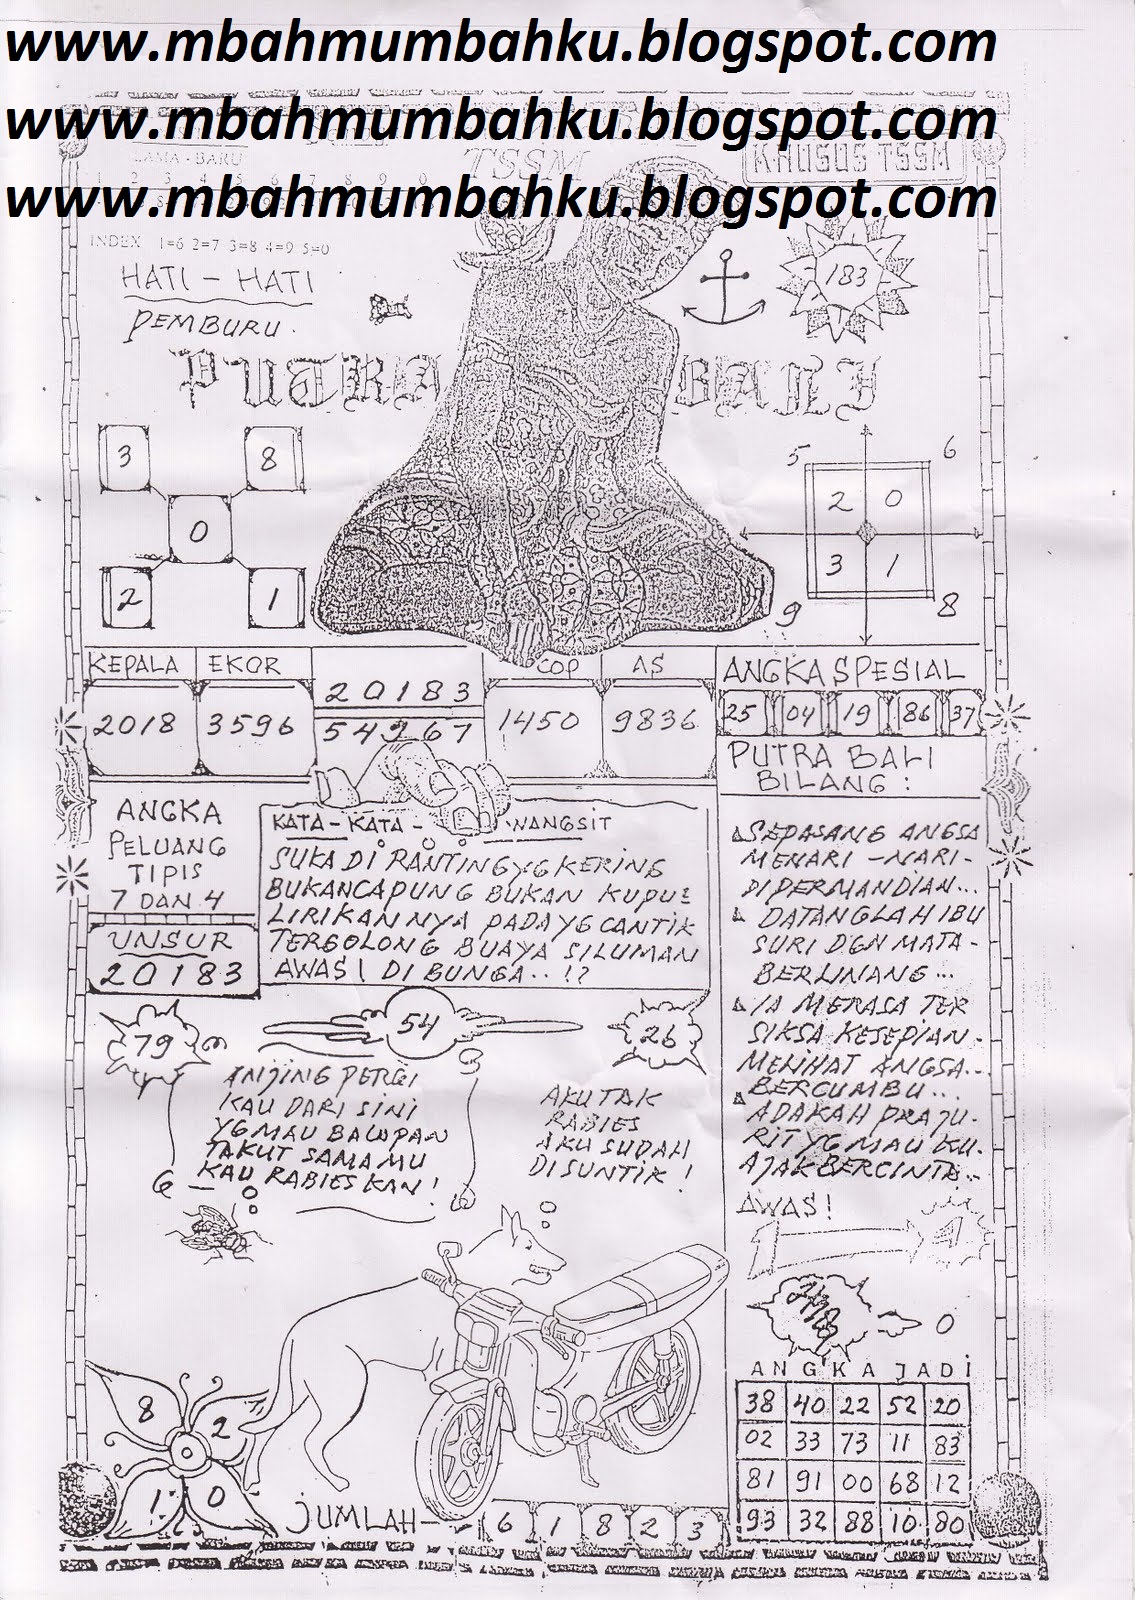 www.mbahmumbahku.blogspot.com
www.mbahmumbahku.blogspot.com
www.mbahmumbahku.blogspot.com
LAMA - BARU
TSSM
KHUSUS TSSM
INDEX 1=6 2=7 3=8 4=9 5=0
HATI - HATI
PEMBURU.
183
PUTRA BALI
3 8
0
2 1
5 6
2 0
3 1
9 8
KEPALA EKOR
2018 3596
20183
54967
COP AS
1450 9836
ANGKA SPESIAL
25 04 19 86 37
PUTRA BALI
BILANG :
ANGKA
PELUANG
TIPIS
7 DAN 4
UNSUR
20183
KATA - KATA - WANGSIT
SUKA DI RANTING YG KERING
BUKAN CAPUNG BUKAN KUPU2
LIRIKANNYA PADA YG CANTIK
TERGOLONG BUAYA SILUMAN
AWAS! DI BUNGA..!?
SEPASANG ANGSA
MENARI - NARI -
DIPERMANDIAN...
DATANGLAH IBU
SURI DGN MATA -
BERLINANG...
IA MERASA TER
SIKSA KESEPIAN -
MELIHAT ANGSA...
BERCUMBU...
ADAKAH PRAJU-
RIT YG MAU KU-
AJAK BERCINTA..
AWAS!
1 4
79
54
26
ANJING PERGI
KAU DARI SINI
YG MAU BALAPAN
TAKUT SAMAMU
KAU RABIES KAN!
AKU TAK
RABIES
AKU SUDAH
DISUNTIK!
0
ANGKA JADI
38 40 22 52 20
02 33 73 11 83
81 91 00 68 12
93 32 88 10 80
8 2
1 0
JUMLAH - 6 1 8 2 3